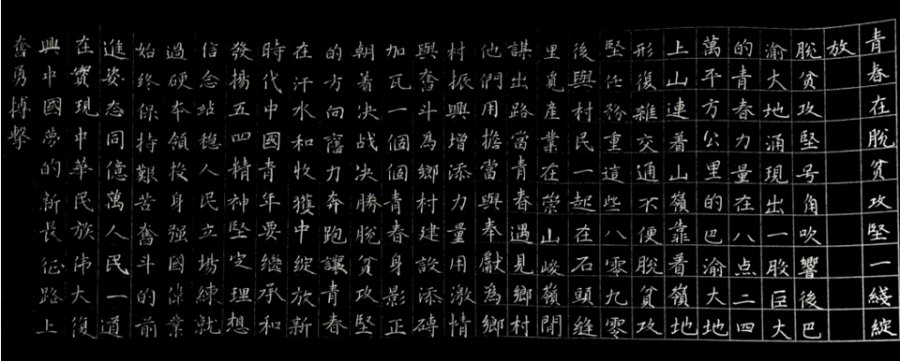 青春在脫貧攻堅一綫綻
放
脫貧攻堅号角吹響後巴
渝大地涌現出一股巨大
的青春力量在八点二四
萬平方公里的巴渝大地
上山連着山嶺靠着嶺地
形復雜交通不便脫貧攻
堅任務重這些八零九零
後與村民一起在石頭縫
里覓産業在崇山峻嶺間
謀出路當青春遇見鄉村
他們用擔當與奉獻為鄉
村振興增添力量用激情
與奮斗為鄉村建設添磚
加瓦一個個青春身影正
朝着决战决勝脫貧攻堅
的方向奮力奔跑讓青春
在汗水和收獲中綻放新
時代中國青年要繼承和
發揚五四精神堅定理想
信念站穩人民立場練就
過硬本領投身强國偉業
始終保持艱苦奮斗的前
進姿态同億萬人民一道
在實現中華民族偉大復
興中國夢的新長征路上
奮勇搏擊